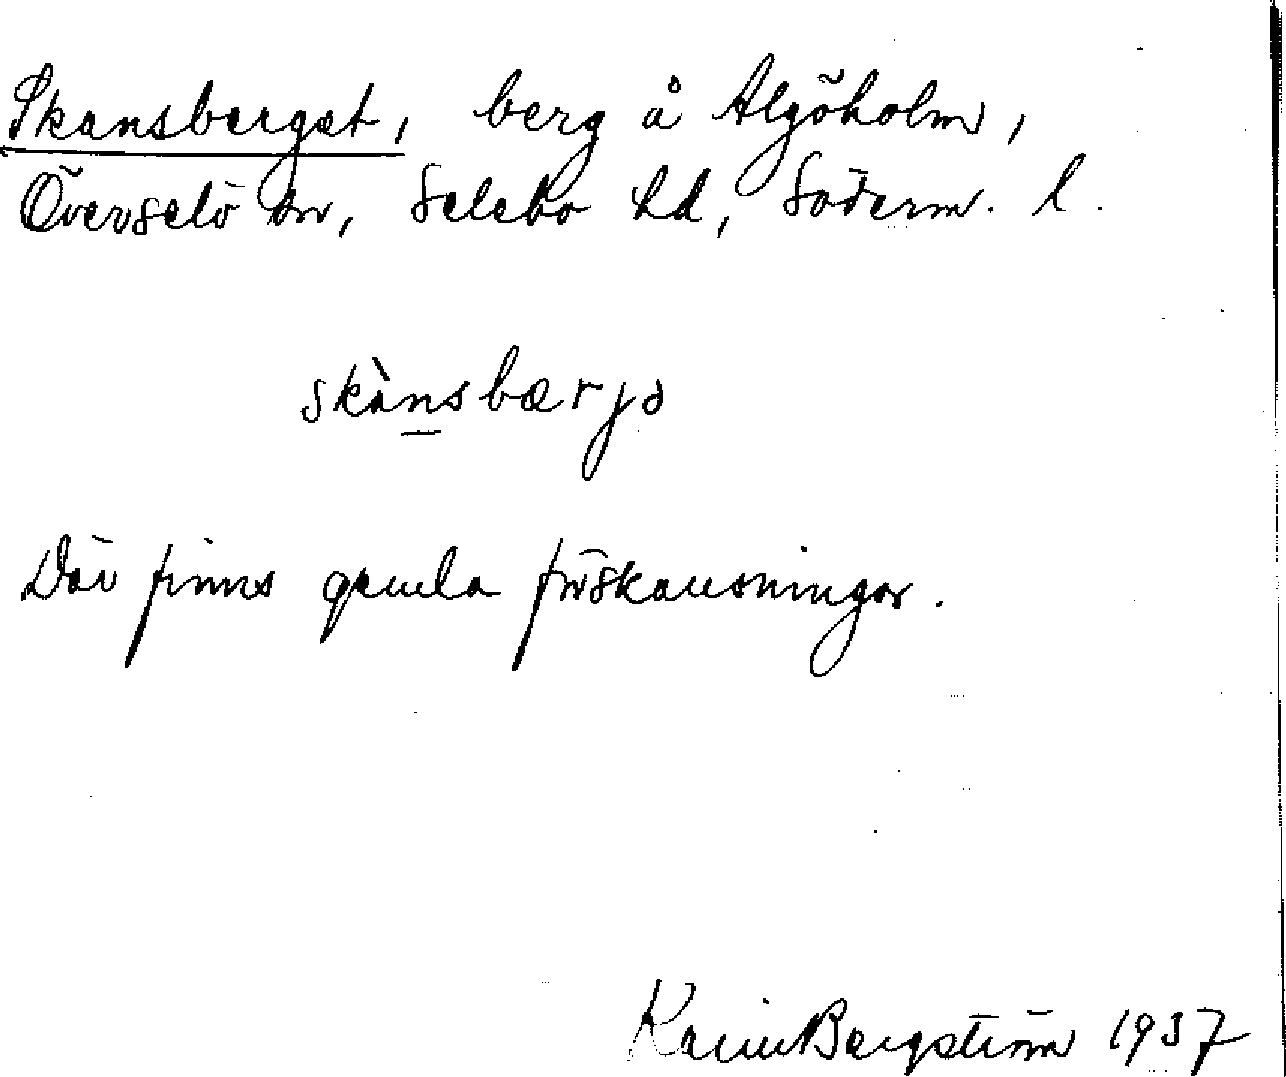 Skansberget, berg å Algöholm,
Överselö sn, Selebo hd, Söderm. l.
skànsbærjə
Där finns gamla förskansningar.
Karin Bergström 1937